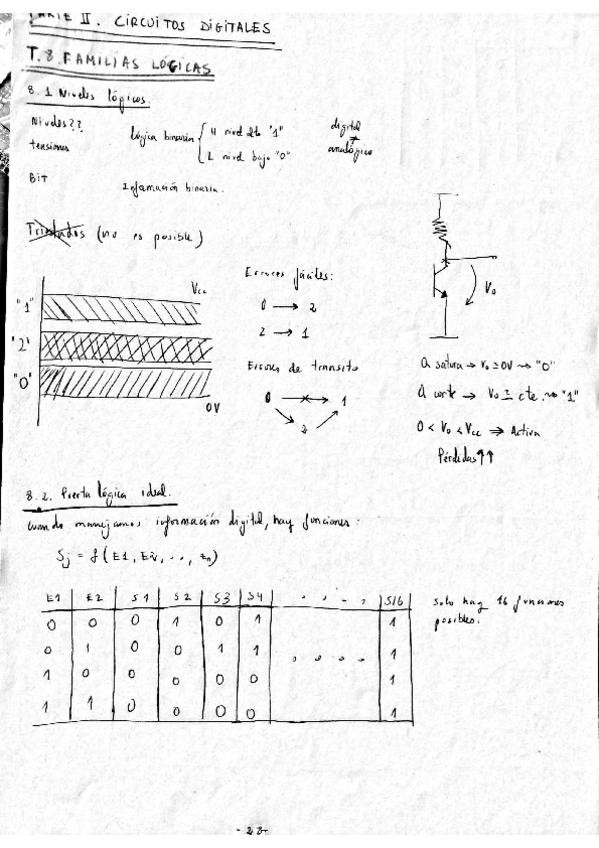 PARTE II. CIRCUITOS DIGITALES
T.8. FAMILIAS LÓGICAS
8.1 Niveles lógicos.
Niveles??
tensiones
lógica binaria { H nivel alto "1"
L nivel bajo "0"
digital
≠
analógico
BIT
Información binaria.
Triestados (no es posible)
Vcc
"1"
"2"
"0"
0V
Errores fáciles:
0 → 2
2 → 1
Errores de transito
0 → 1
2
Vo
Q satura → Vo ≃ 0V → "0"
Q corte → Vo ≃ cte. → "1"
0 < Vo < Vcc ⇒ Activa
Pérdidas ↑↑
8.2. Puerta lógica ideal.
Cuando manejamos información digital, hay funciones:
Sj = f(E1, E2, ..., En)
E1 E2 S1 S2 S3 S4 . . . . S16
0 0 0 1 0 1 1
0 1 0 0 1 1 . . . . 1
1 0 0 0 0 0 1
1 1 0 0 0 0 1
Solo hay 16 funciones
posibles.
- 23 -